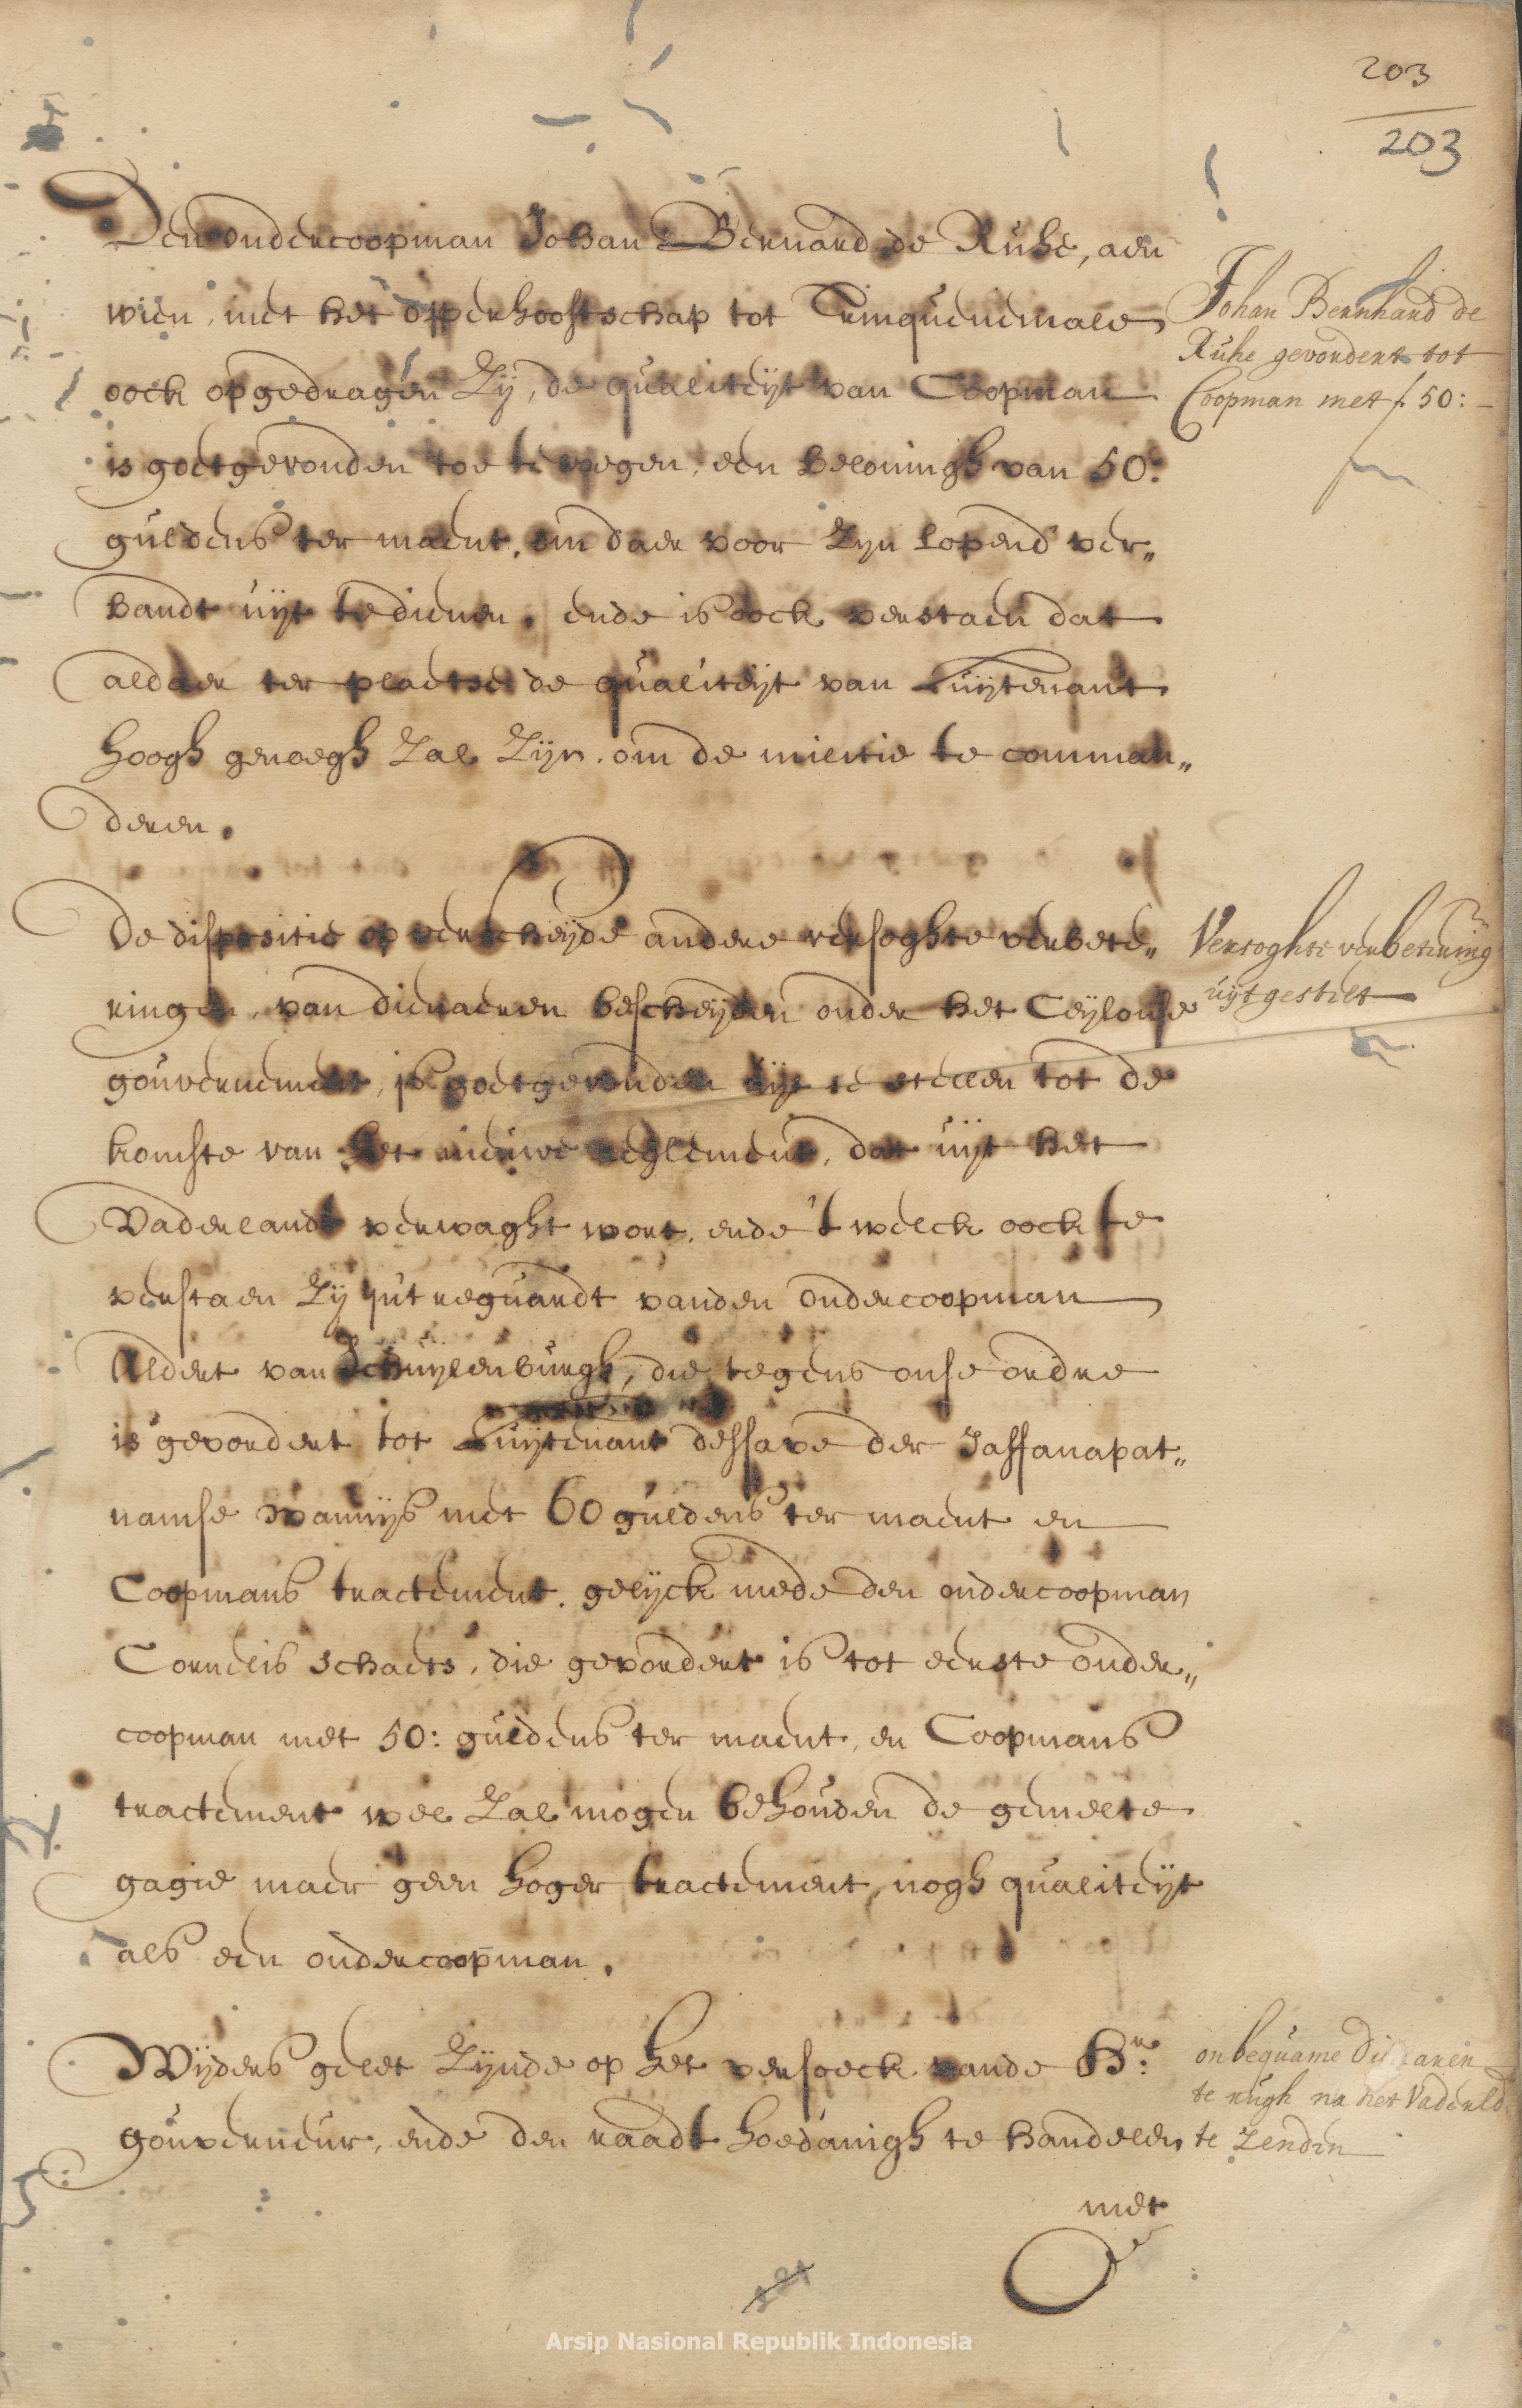 203
203
Den ondercoopman Johan Bernard de Ruhe, aen
wien, met het opperhooftschap tot Trinquenemale
oock opgedragen zy, de qualiteÿt van Coopman
is goetgevonden toe te voegen, een beloningh van 50:
guldens ter maent, om daer voor zyn lopend ver„
bandt uijt te dienen, ende is oock verstaen dat
aldaer ter plaetse de qualiteÿt van Luijtenant
hoogh genoegh zal zijn, om de militie te comman„
deren.
Johan Bernhard de
Ruhe gevordert tot
Coopman met f 50:-
De dispositie op verscheijde andere versoghte verbete„
ringen, van dienaeren bescheijden onder het Ceylonse
gouvernement, is goetgevonden uijt te stellen tot de
komste van het nieuwe reglement, dat uijt het
Vaderlandt verwaght wort, ende 't welck oock te
verstaen zij int reguardt vanden ondercoopman
Aldert van Schuijlenburgh, die tegens onse ordre
is gevordert tot Luijtenant dessave der Jaffanapat„
namse wannijs met 60 guldens ter maent en
Coopmans tractement, gelijck mede den ondercoopman
Cornelis Schaets, die gevordert is tot eerste onder„
coopman met 50: guldens ter maent, en Coopmans
tractement wel zal mogen behouden de gemelte
gagie maer geen hoger tractement, nogh qualiteijt
als een ondercoopman.
Versoghte verbetering
uijtgestelt
Wijders gelet zijnde op het versoeck vande Hr:
gouverneur, ende den raadt hoedanigh te handelen
onbequame dienaren
te rugh na het Vaderld.
te zenden
met
Arsip Nasional Republik Indonesia